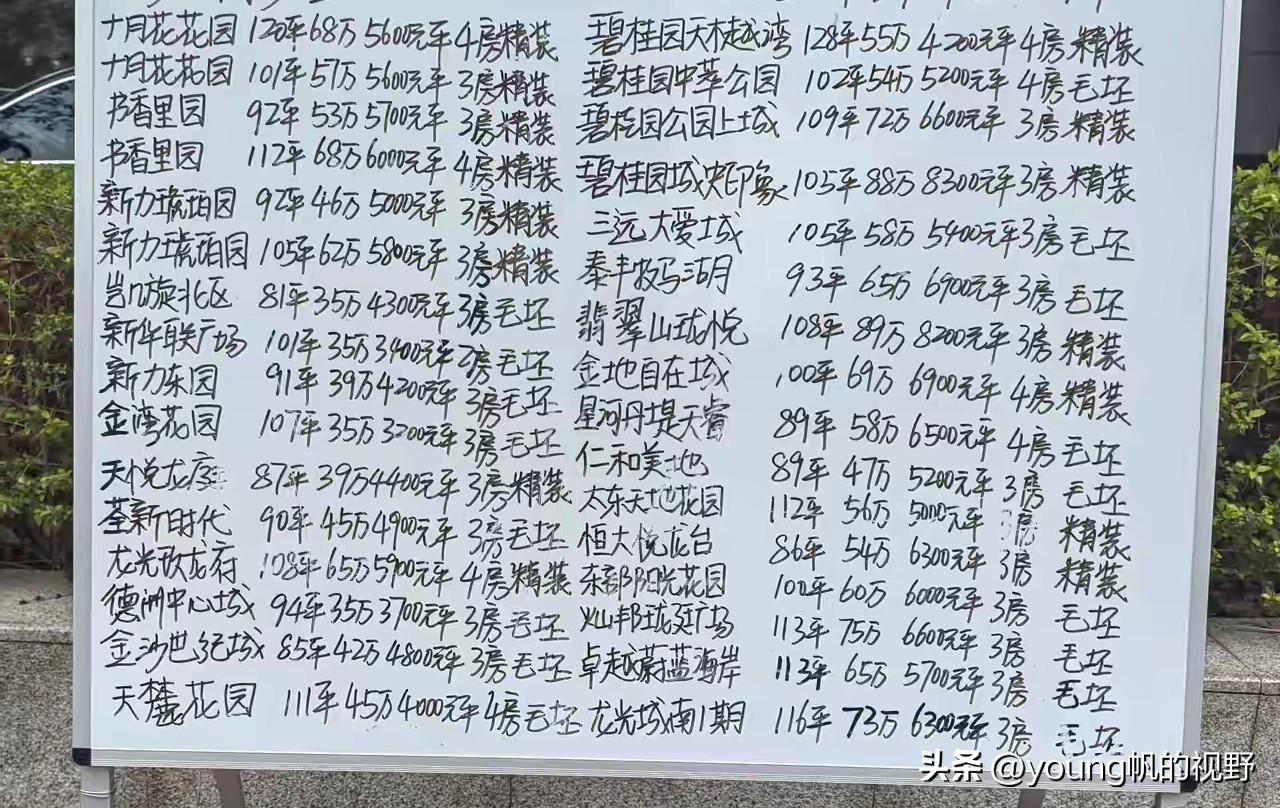 十月花花园 120平 68万 5600元平 4房精装
十月花花园 101平 57万 5600元平 3房精装
书香里园 92平 53万 5700元平 3房精装
书香里园 112平 68万 6000元平 4房精装
新力琥珀园 92平 46万 5000元平 3房精装
新力琥珀园 105平 62万 5800元平 3房精装
凯旋北区 81平 35万 4300元平 3房毛坯
新华联广场 101平 35万 3400元平 2房毛坯
新力东园 91平 39万 4200元平 3房毛坯
金湾花园 107平 35万 3200元平 3房毛坯
天悦龙庭 87平 39万 4400元平 3房精装
荃新时代 90平 45万 4900元平 3房毛坯
龙光玖龙府 108平 65万 5900元平 4房精装
德洲中心城 94平 35万 3700元平 3房毛坯
金沙世纪城 85平 42万 4800元平 3房毛坯
天麓花园 111平 45万 4000元平 4房毛坯
碧桂园天樾湾 128平 55万 4200元平 4房 精装
碧桂园中萃公园 102平 54万 5200元平 4房 毛坯
碧桂园公园上城 109平 72万 6600元平 3房 精装
碧桂园城央印象 105平 88万 8300元平 3房 精装
三远大爱城 105平 58万 5400元平 3房 毛坯
泰丰牧马湖 93平 65万 6900元平 3房 毛坯
翡翠山珑悦 108平 89万 8200元平 3房 精装
金地自在城 100平 69万 6900元平 4房 精装
星河丹堤天睿 89平 58万 6500元平 4房 毛坯
仁和美地 89平 47万 5200元平 3房 毛坯
太东天地花园 112平 56万 5000元平 3房 精装
恒大悦龙台 86平 54万 6300元平 3房 精装
东部阳光花园 100平 60万 6000元平 3房 毛坯
灿邦珑廷广场 113平 75万 6600元平 3房 毛坯
卓越蔚蓝海岸 113平 65万 5700元平 3房 毛坯
龙光城南1期 116平 73万 6300元平 3房 毛坯
头条 @young帆的视野